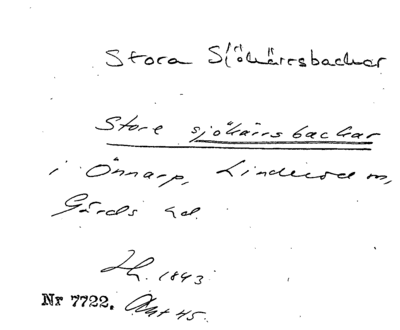 Stora Sjökärrsbackar
Store sjökärrsbackar
i Önnarp, Linderöd sn,
Gärds hd.
Lh. 1843
Nr 7722. Akt 45.